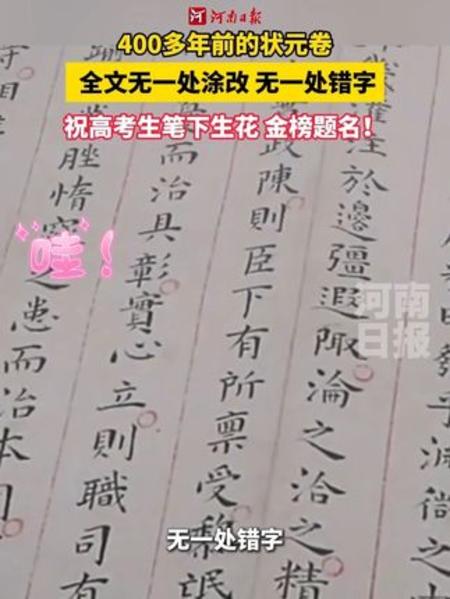 河南日报
400多年前的状元卷
全文无一处涂改 无一处错字
祝高考生笔下生花 金榜题名！
哇！
河南
日报
發乎淵微
灌注於邊疆遐陬淪之洽之精
政陳則臣下有所稟受黎氓
而治具彰實心立則職司有
脞惰窳之患而治本固
无一处错字